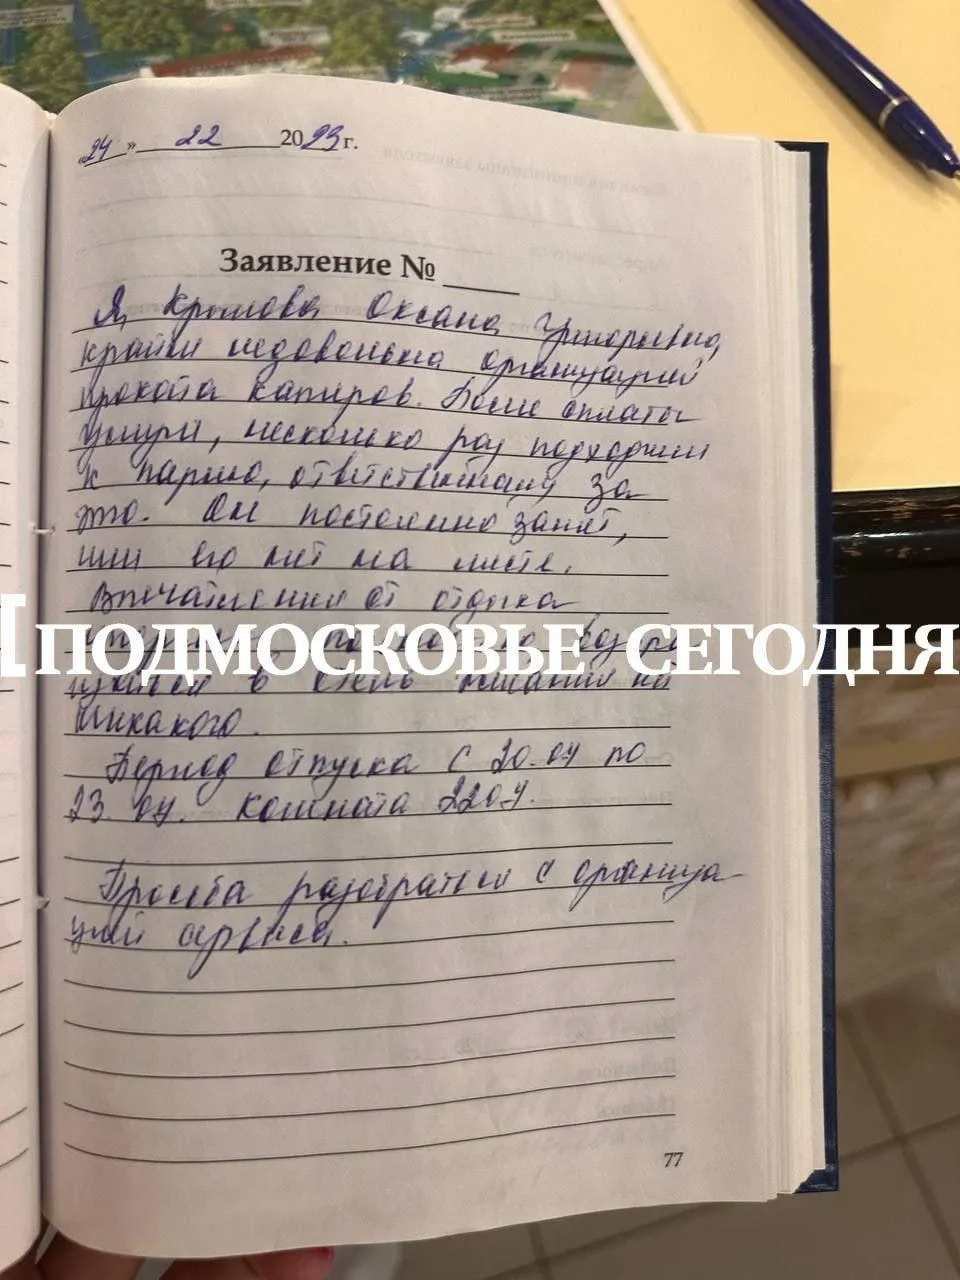 «24» 22 2023 г.
Заявление №
Я, Крылова Оксана Григорьевна,
крайне недовольна организацией
проката катиров. После оплаты
услуги, несколько раз подходили
к парню, ответственному за
это. Он постоянно занят,
или его нет на месте.
Впечатления от отдыха
ПОДМОСКОВЬЕ СЕГОДНЯ
в отель желания ни
никакого.
Период отпуска с 20.04 по
23.04. Комната 2204.
Просьба разобраться с организа-
цией сервиса.
77